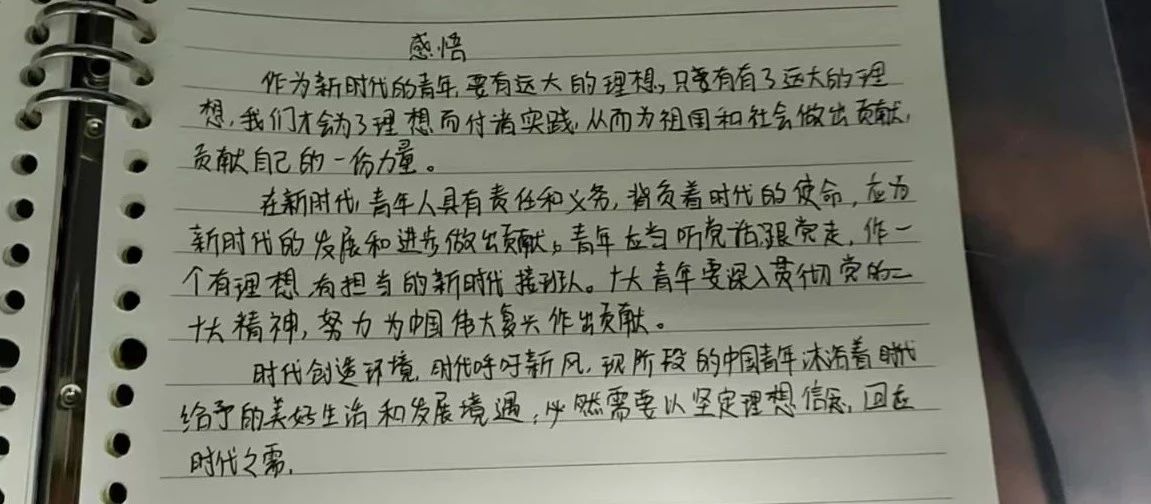 感悟
作为新时代的青年,要有远大的理想。只要有有了远大的理
想,我们才会为了理想而付诸实践,从而为祖国和社会做出贡献,
贡献自己的一份力量。
在新时代,青年人具有责任和义务,背负着时代的使命,应为
新时代的发展和进步做出贡献。青年应当听党话跟党走,作一
个有理想,有担当的新时代接班人。广大青年要深入贯彻党的二
十大精神,努力为中国伟大复兴作出贡献。
时代创造环境,时代呼吁新风,现阶段的中国青年沐浴着时代
给予的美好生活和发展境遇,必然需要以坚定理想信念,回应
时代之需,